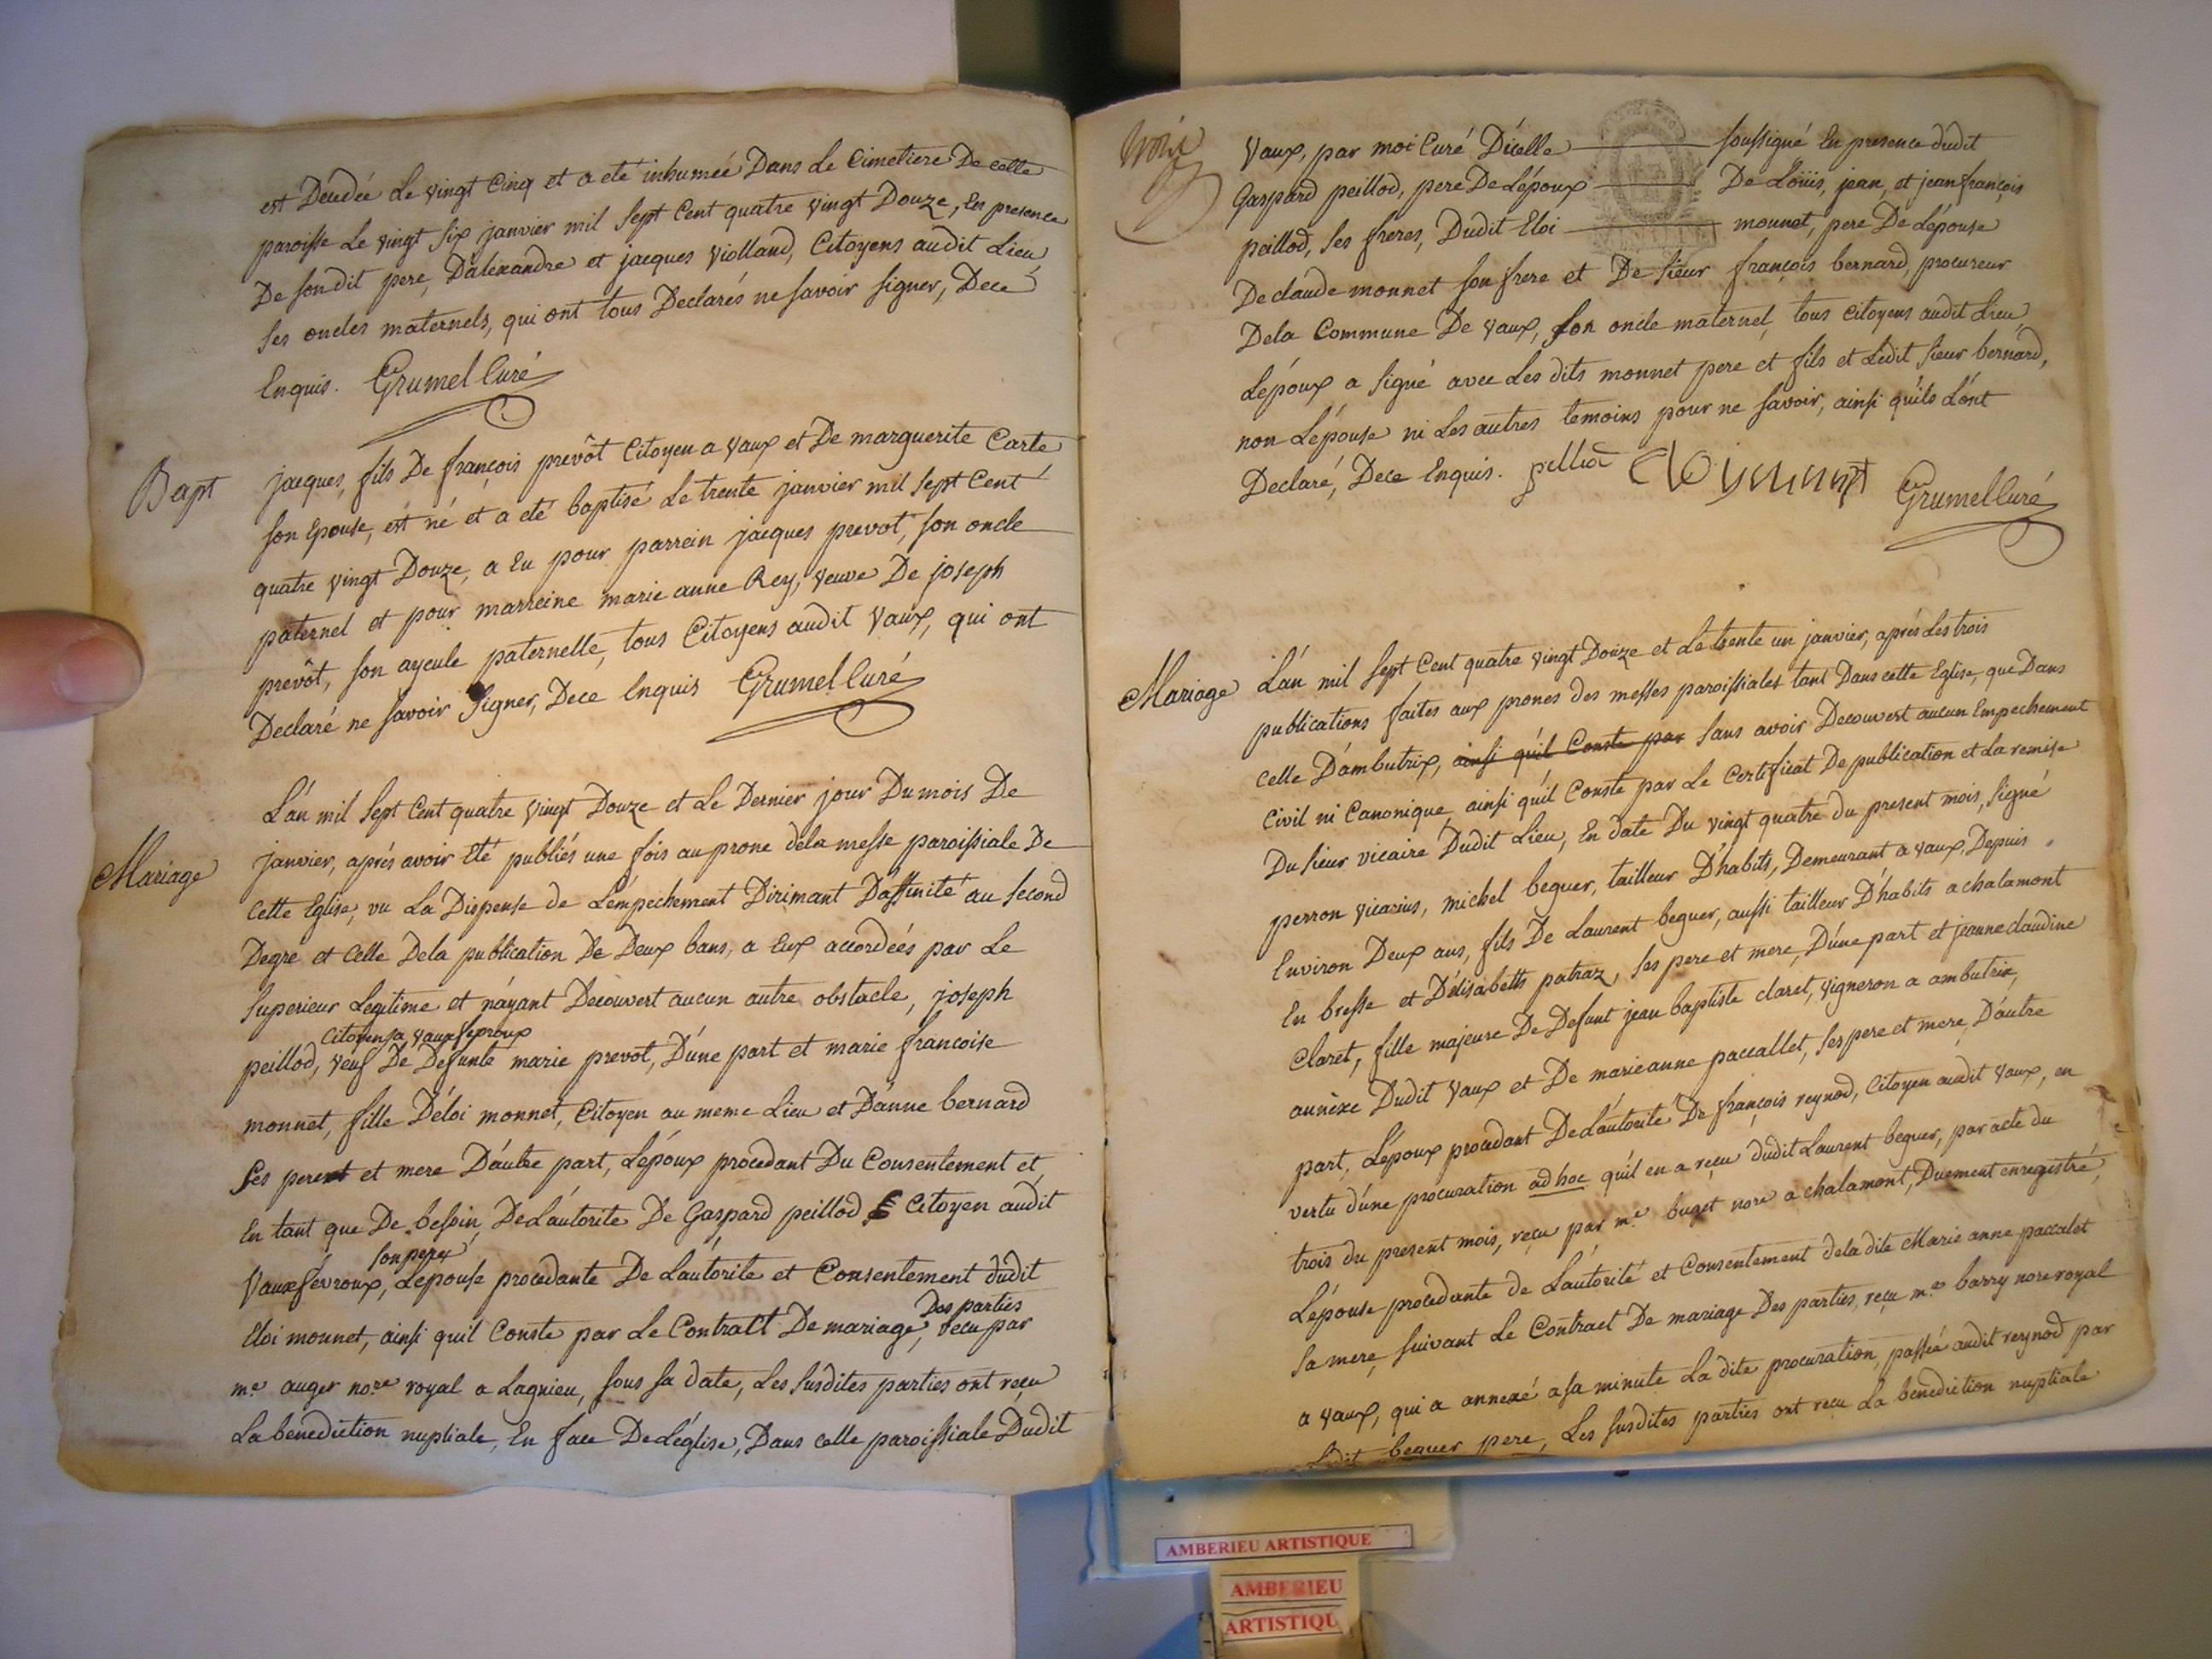 est Décédée Le vingt Cinq et a eté inhumée Dans Le Cimetiere De cette
paroisse Le vingt Six janvier mil Sept Cent quatre vingt Douze, En presence
De son dit pere, D'alexandre et jacques Violland, Citoyens audit Lieu,
Ses oncles maternels, qui ont tous Declarés ne savoir Signer, De ce
Enquis. Grumel Curé
Bapt
jacques, fils De françois prevôt Citoyen a Vaux et De marguerite Carte
Son Epouse, est né et a eté baptisé Le trente janvier mil Sept Cent
quatre vingt Douze, a Eu pour parrein jacques prevot, son oncle
paternel et pour marreine marie anne Rey, veuve De joseph
prevôt, son ayeule paternelle, tous Citoyens audit Vaux, qui ont
Declaré ne savoir Signer, De ce Enquis Grumel Curé
Mariage
L'an mil Sept Cent quatre vingt Douze et Le Dernier jour Du mois De
janvier, aprés avoir Eté publiés une fois au prone dela messe paroissiale De
Cette Eglise, vu La Dispense de L'empechement Dirimant D'affinité au Second
Degre et Celle Dela publication De Deux bans, a Eux accordeés par Le
Superieur Legitime et n'ayant Decouvert aucun autre obstacle, joseph
Citoyen a Vaux fevroux
peillod, veuf De Defunte marie prevot, D'une part et marie francoise
monnet, fille D'éloi monnet, Citoyen au meme Lieu et D'anne bernard
Ses pere et mere D'autre part, L'époux procedant Du Consentement et
En tant que De besoin, De L'autorite De Gaspard peillod Citoyen audit
son pere
Vaux fevroux, L'epouse procedante De L'autorite et Consentement dudit
Des parties
Eloi monnet, ainsi quil Conste par Le Contratt De mariage, recu par
me auger nore royal a Lagnieu, sous sa date, Les Susdites parties ont reçu
La benediction nuptiale, En face De L'église, Dans celle paroissiale Dudit
trois
Vaux, par moi Curé D'icelle soussigné En presence dudit
Gaspard peillod, pere De L'époux De Loüis, jean, et jean françois
peillod, Ses freres, Dudit Eloi monnet, pere De L'epouse
De claude monnet son frere et De sieur françois bernard, procureur
Dela Commune De vaux, son oncle maternel, tous Citoyens audit Lieu,
L'époux a Signé avec Les dits monnet pere et fils et Ledit sieur bernard,
non L'épouse ni Les autres temoins pour ne savoir, ainsi qu'ils L'ont
Declaré, De ce Enquis. Grumel Curé
Mariage
L'an mil Sept Cent quatre vingt Douze et Le trente un janvier, aprés Les trois
publications faites aux prones des messes paroissiales tant Dans cette Eglise, que Dans
celle D'ambutrix, ainsi qu'il Conste par Sans avoir Decouvert aucun Empechement
Civil ni Canonique, ainsi qu'il Conste par Le Certificat De publication et La remise
Du sieur vicaire Dudit Lieu, En date Du vingt quatre du present mois, Signé
perron vicarius, michel beguer, tailleur D'habits, Demeurant a vaux, Depuis
Environ Deux ans, fils De Laurent beguer, aussi tailleur D'habits a chalamont
En bresse et D'élisabeth patraz, Ses pere et mere, D'une part et jeanne claudine
Claret, fille majeure De Defunt jean baptiste claret, vigneron a ambutrix,
annèxe Dudit Vaux et De marie anne paccallet, Ses pere et mere, D'autre
part, L'époux procedant De L'autorité De françois reynod, Citoyen audit Vaux, en
vertu d'une procuration ad hoc qu'il en a reçu dudit Laurent beguer, par acte du
trois du present mois, reçu par me buget nore a chalamont, Duement enregistré,
L'épouse procedante de L'autorité et Consentement dela dite Marie anne paccalet
Sa mere, suivant Le Contract De mariage Des parties, reçu me barry nore royal
a vaux, qui a annexé a sa minute La dite procuration, passée audit reynod par
Ledit beguer pere, Les Susdites parties ont recu La benediction nuptiale
AMBERIEU ARTISTIQUE
AMBERIEU
ARTISTIQU